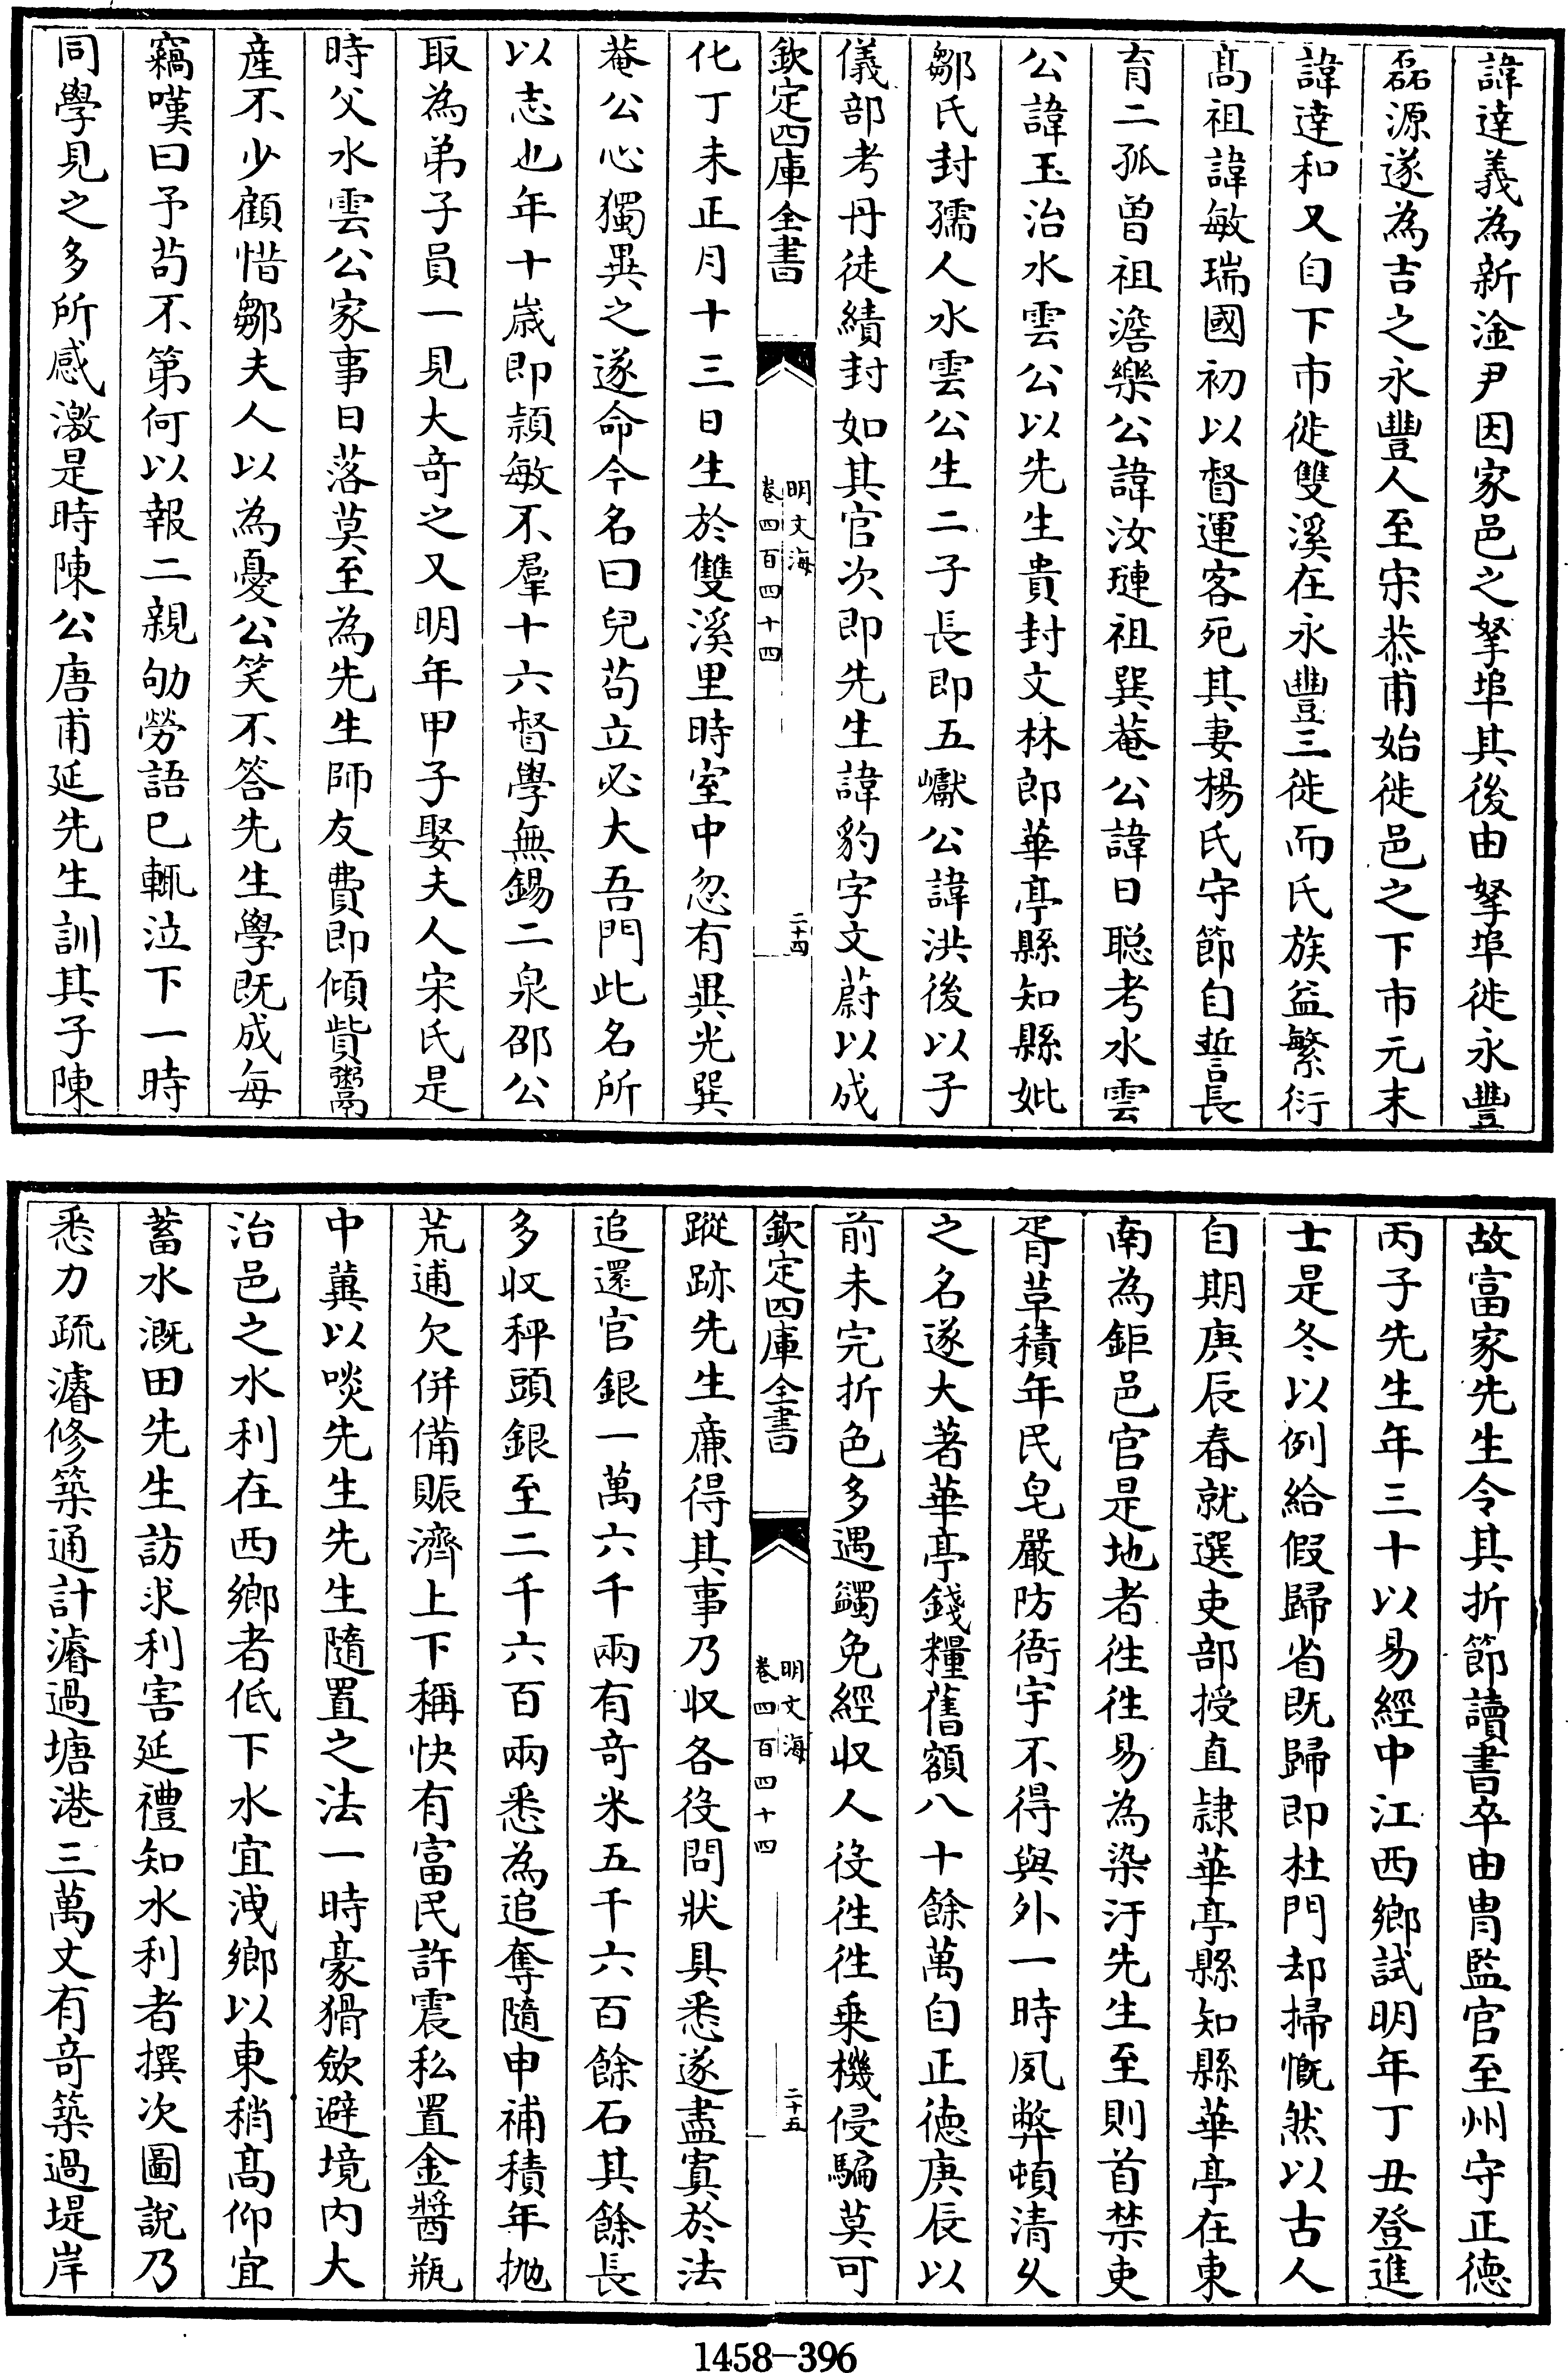 諱逹義為新淦尹因家邑之拏埠其後由拏埠徙永豐
磊源遂為吉之永豐人至宋恭甫始徙邑之下市元末
諱逹和又自下市徙雙溪在永豐三徙而氏族益繁衍
髙祖諱敏瑞國初以督運客死其妻楊氏守節自誓長
育二孤曾祖澹樂公諱汝璉祖巽菴公諱日聰考水雲
公諱玉治水雲公以先生貴封文林郎華亭縣知縣妣
鄒氏封孺人水雲公生二子長即五巘公諱洪後以子
儀部考丹徒績封如其官次即先生諱豹字文蔚以成
欽定四庫全書
明文海
卷四百四十四
二十四
化丁未正月十三日生於雙溪里時室中忽有異光巽
菴公心獨異之遂命今名曰兒茍立必大吾門此名所
以志也年十歳即頴敏不羣十六督學無錫二泉邵公
取為弟子員一見大竒之又明年甲子娶夫人宋氏是
時父水雲公家事日落莫至為先生師友費即傾貲鬻
産不少顧惜鄒夫人以為憂公笑不答先生學既成每
竊嘆曰予茍不第何以報二親劬勞語已輒泣下一時
同學見之多所感激是時陳公唐甫延先生訓其子陳
故富家先生令其折節讀書卒由胄監官至州守正徳
丙子先生年三十以易經中江西鄉試明年丁丑登進
士是冬以例給假歸省既歸即杜門却掃慨然以古人
自期庚辰春就選吏部授直隷華亭縣知縣華亭在東
南為鉅邑官是地者徃徃易為染汙先生至則首禁吏
胥草積年民皂嚴防衙宇不得與外一時夙弊頓清乆
之名遂大著華亭錢糧舊額八十餘萬自正徳庚辰以
前未完折色多遇蠲免經収人役徃徃乗機侵騙莫可
欽定四庫全書
明文海
卷四百四十四
二十五
蹤跡先生亷得其事乃収各役問狀具悉遂盡寘於法
追還官銀一萬六千兩有竒米五千六百餘石其餘長
多収秤頭銀至二千六百兩悉為追奪隨申補積年抛
荒逋欠併備賑濟上下稱快有富民許震私置金醬瓶
中冀以啖先生先生隨置之法一時豪猾斂避境内大
治邑之水利在西鄉者低下水宜洩鄉以東稍髙仰宜
蓄水溉田先生訪求利害延禮知水利者撰次圖說乃
悉力疏濬修築通計濬過塘港三萬丈有竒築過堤岸
1458-396